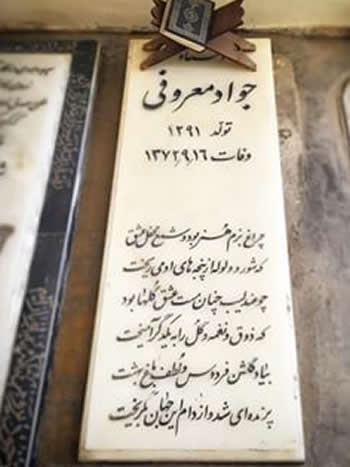 استاد
جواد معروفی
تولد ۱۲۹۱
وفات ۱۳۷۲٫۹٫۱۶
چراغ بزم هنر بود و شمع محفل عشق
که شور و ولوله از پنجه های او می ریخت
چو عندلیب چنان مست عشق گلها بود
که ذوق و نغمه و گل را به یکدگر آمیخت
بیاد گلشن فردوس و لطف باغ بهشت
پرنده ای شد و از دام این جهان بگریخت